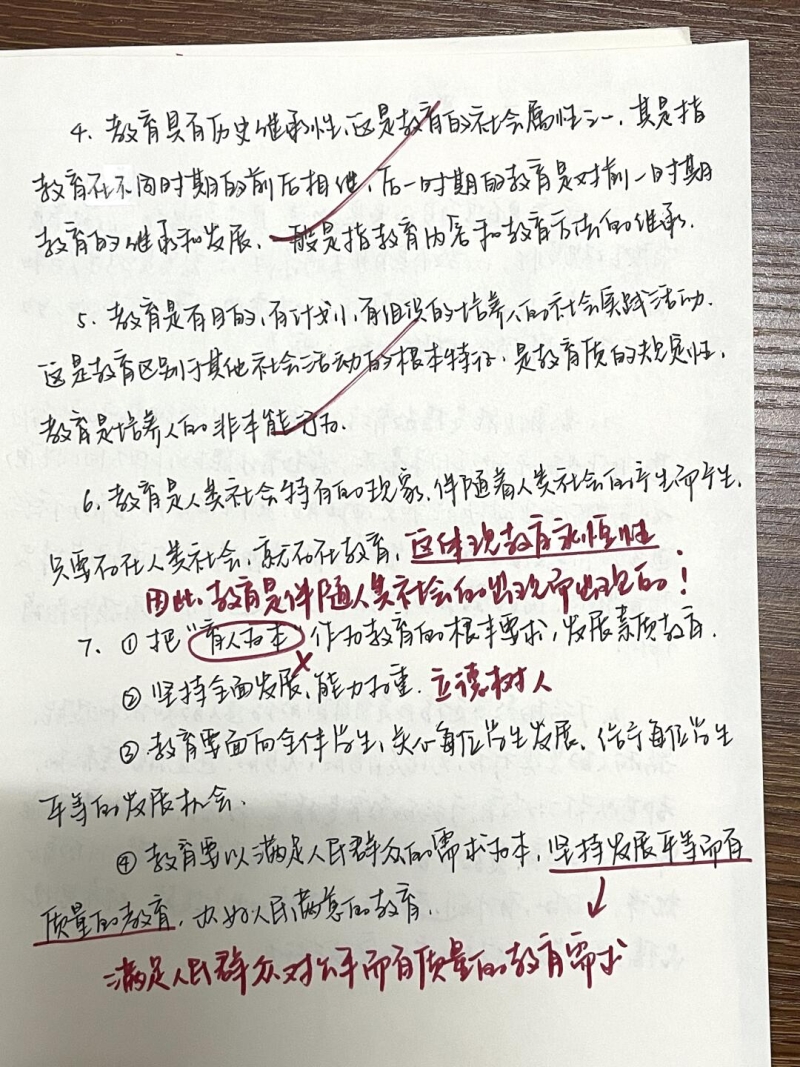 4、教育具有历史继承性,这是教育的社会属性之一,其是指
教育在不同时期的前后相继,后一时期的教育是对前一时期
教育的继承和发展,一般是指教育内容和教育方法的继承.
5、教育是有目的,有计划,有组织的培养人的社会实践活动.
这是教育区别于其他社会活动的根本特征,是教育质的规定性,
教育是培养人的非本能行为.
6、教育是人类社会特有的现象,伴随着人类社会的产生而产生,
只要存在人类社会,就存在教育,这体现教育永恒性
因此,教育是伴随人类社会的出现而出现的!
7、①把“育人为本”作为教育的根本要求,发展素质教育.
②坚持全面发展,能力为重.立德树人
③教育要面向全体学生,关心每位学生发展、给予每位学生
平等的发展机会.
④教育要以满足人民群众的需求为本,坚持发展平等而有
质量的教育,办好人民满意的教育.
满足人民群众对公平而有质量的教育需求